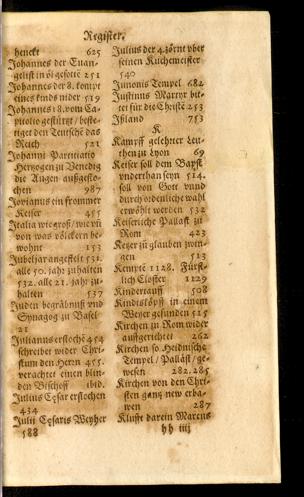 Register.
henckt 625
Johannes der Euan-
gelist in öl gesotte 251
Johannes der 8. kompt
eines kinds nider 519
Johannes 18. vom Ca-
pitolio gestürtzt / beste-
tiget den Teutsche das
Reich 521
Johanni Partitiatio
Hertzogen zu Venedig
die Augen außgesto-
chen 987
Jovianus ein frommer
Keiser 455
Italia wie groß / wie vñ
von was völckern be-
wohnt 153
Jubeljar angestelt 531.
alle 50. jahr zu halten
532. alle 21. jahr zu-
halten 537
Juden begräbnuß vnd
Synagog zu Basel
21
Julianus erstochē 454
schreibet wider Chri-
stum den Hern 455.
verachtet einen blin-
den Bischoff ibid.
Julius Cęsar erstochen
434
Julii Cęsaris Weyher
588
Julius der 4. zörnt vber
seinen Kuchemeister
540
Junonis Tempel 682
Justinus Martyr bit-
tet für die Christē 253
Jßland 753
K
Kampff gelehrter Leu-
then zu Lyon 69
Keiser soll dem Bapst
vnderthan seyn 514.
soll von Gott vnnd
durch ordenliche wahl
erwöhlt werden 532
Keiserliche Pallast zu
Rom 423
Ketzer zu glauben zwin-
gen 513
Kempte 1128. Fürst-
lich Closter 1129
Kindertauff 508
Kindtsköpff in einem
Weyer gefunden 515
Kirchen zu Rom wider
auffgerichtet 262
Kirchen so Heidnische
Tempel / Palläst / ge-
wesen 282.285
Kirchen von den Chri-
sten gantz new erba-
wen 287
Klufft darein Marcus
hh iiij